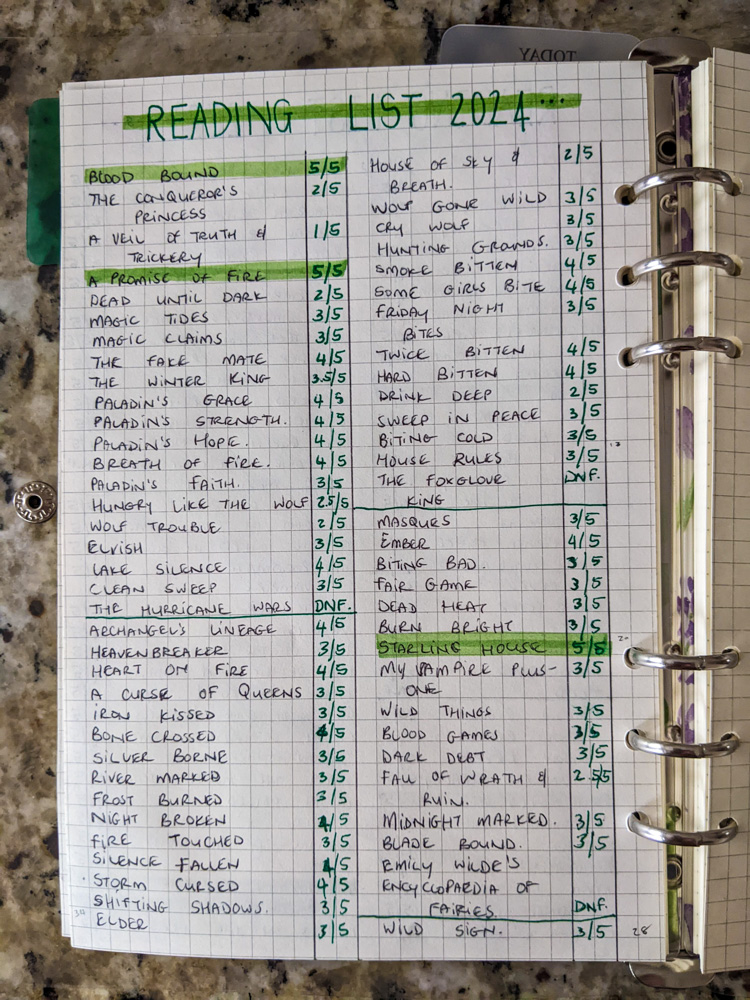 TODAY
READING LIST 2024...
BLOOD BOUND 5/5
THE CONQUEROR'S 2/5
PRINCESS
A VEIL OF TRUTH & 1/5
TRICKERY
A PROMISE OF FIRE 5/5
DEAD UNTIL DARK 2/5
MAGIC TIDES 3/5
MAGIC CLAIMS 3/5
THE FAKE MATE 4/5
THE WINTER KING 3.5/5
PALADIN'S GRACE 4/5
PALADIN'S STRENGTH. 4/5
PALADIN'S HOPE. 4/5
BREATH OF FIRE. 4/5
PALADIN'S FAITH. 3/5
HUNGRY LIKE THE WOLF 2.5/5
WOLF TROUBLE 2/5
ELVISH 3/5
LAKE SILENCE 4/5
CLEAN SWEEP 3/5
THE HURRICANE WARS DNF.
ARCHANGEL'S LINEAGE 4/5
HEAVENBREAKER 3/5
HEART ON FIRE 4/5
A CURSE OF QUEENS 3/5
IRON KISSED 3/5
BONE CROSSED 4/5
SILVER BORNE 3/5
RIVER MARKED 3/5
FROST BURNED 3/5
NIGHT BROKEN 4/5
FIRE TOUCHED 3/5
SILENCE FALLEN 4/5
STORM CURSED 4/5
SHIFTING SHADOWS. 3/5
ELDER 3/5
HOUSE OF SKY & 2/5
BREATH.
WOLF GONE WILD 3/5
CRY WOLF 3/5
HUNTING GROUNDS. 3/5
SMOKE BITTEN 4/5
SOME GIRLS BITE 4/5
FRIDAY NIGHT 3/5
BITES
TWICE BITTEN 4/5
HARD BITTEN 4/5
DRINK DEEP 2/5
SWEEP IN PEACE 3/5
BITING COLD 3/5
HOUSE RULES 3/5
THE FOXGLOVE DNF.
KING
MASQUES 3/5
EMBER 4/5
BITING BAD. 3/5
FAIR GAME 3/5
DEAD HEAT 3/5
BURN BRIGHT 3/5
STARLING HOUSE 5/5
MY VAMPIRE PLUS- 3/5
ONE
WILD THINGS 3/5
BLOOD GAMES 3/5
DARK DEBT 3/5
FALL OF WRATH & 2.5/5
RUIN.
MIDNIGHT MARKED. 3/5
BLADE BOUND. 3/5
EMILY WILDE'S
ENCYCLOPAEDIA OF
FAIRIES DNF.
WILD SIGN. 3/5
28